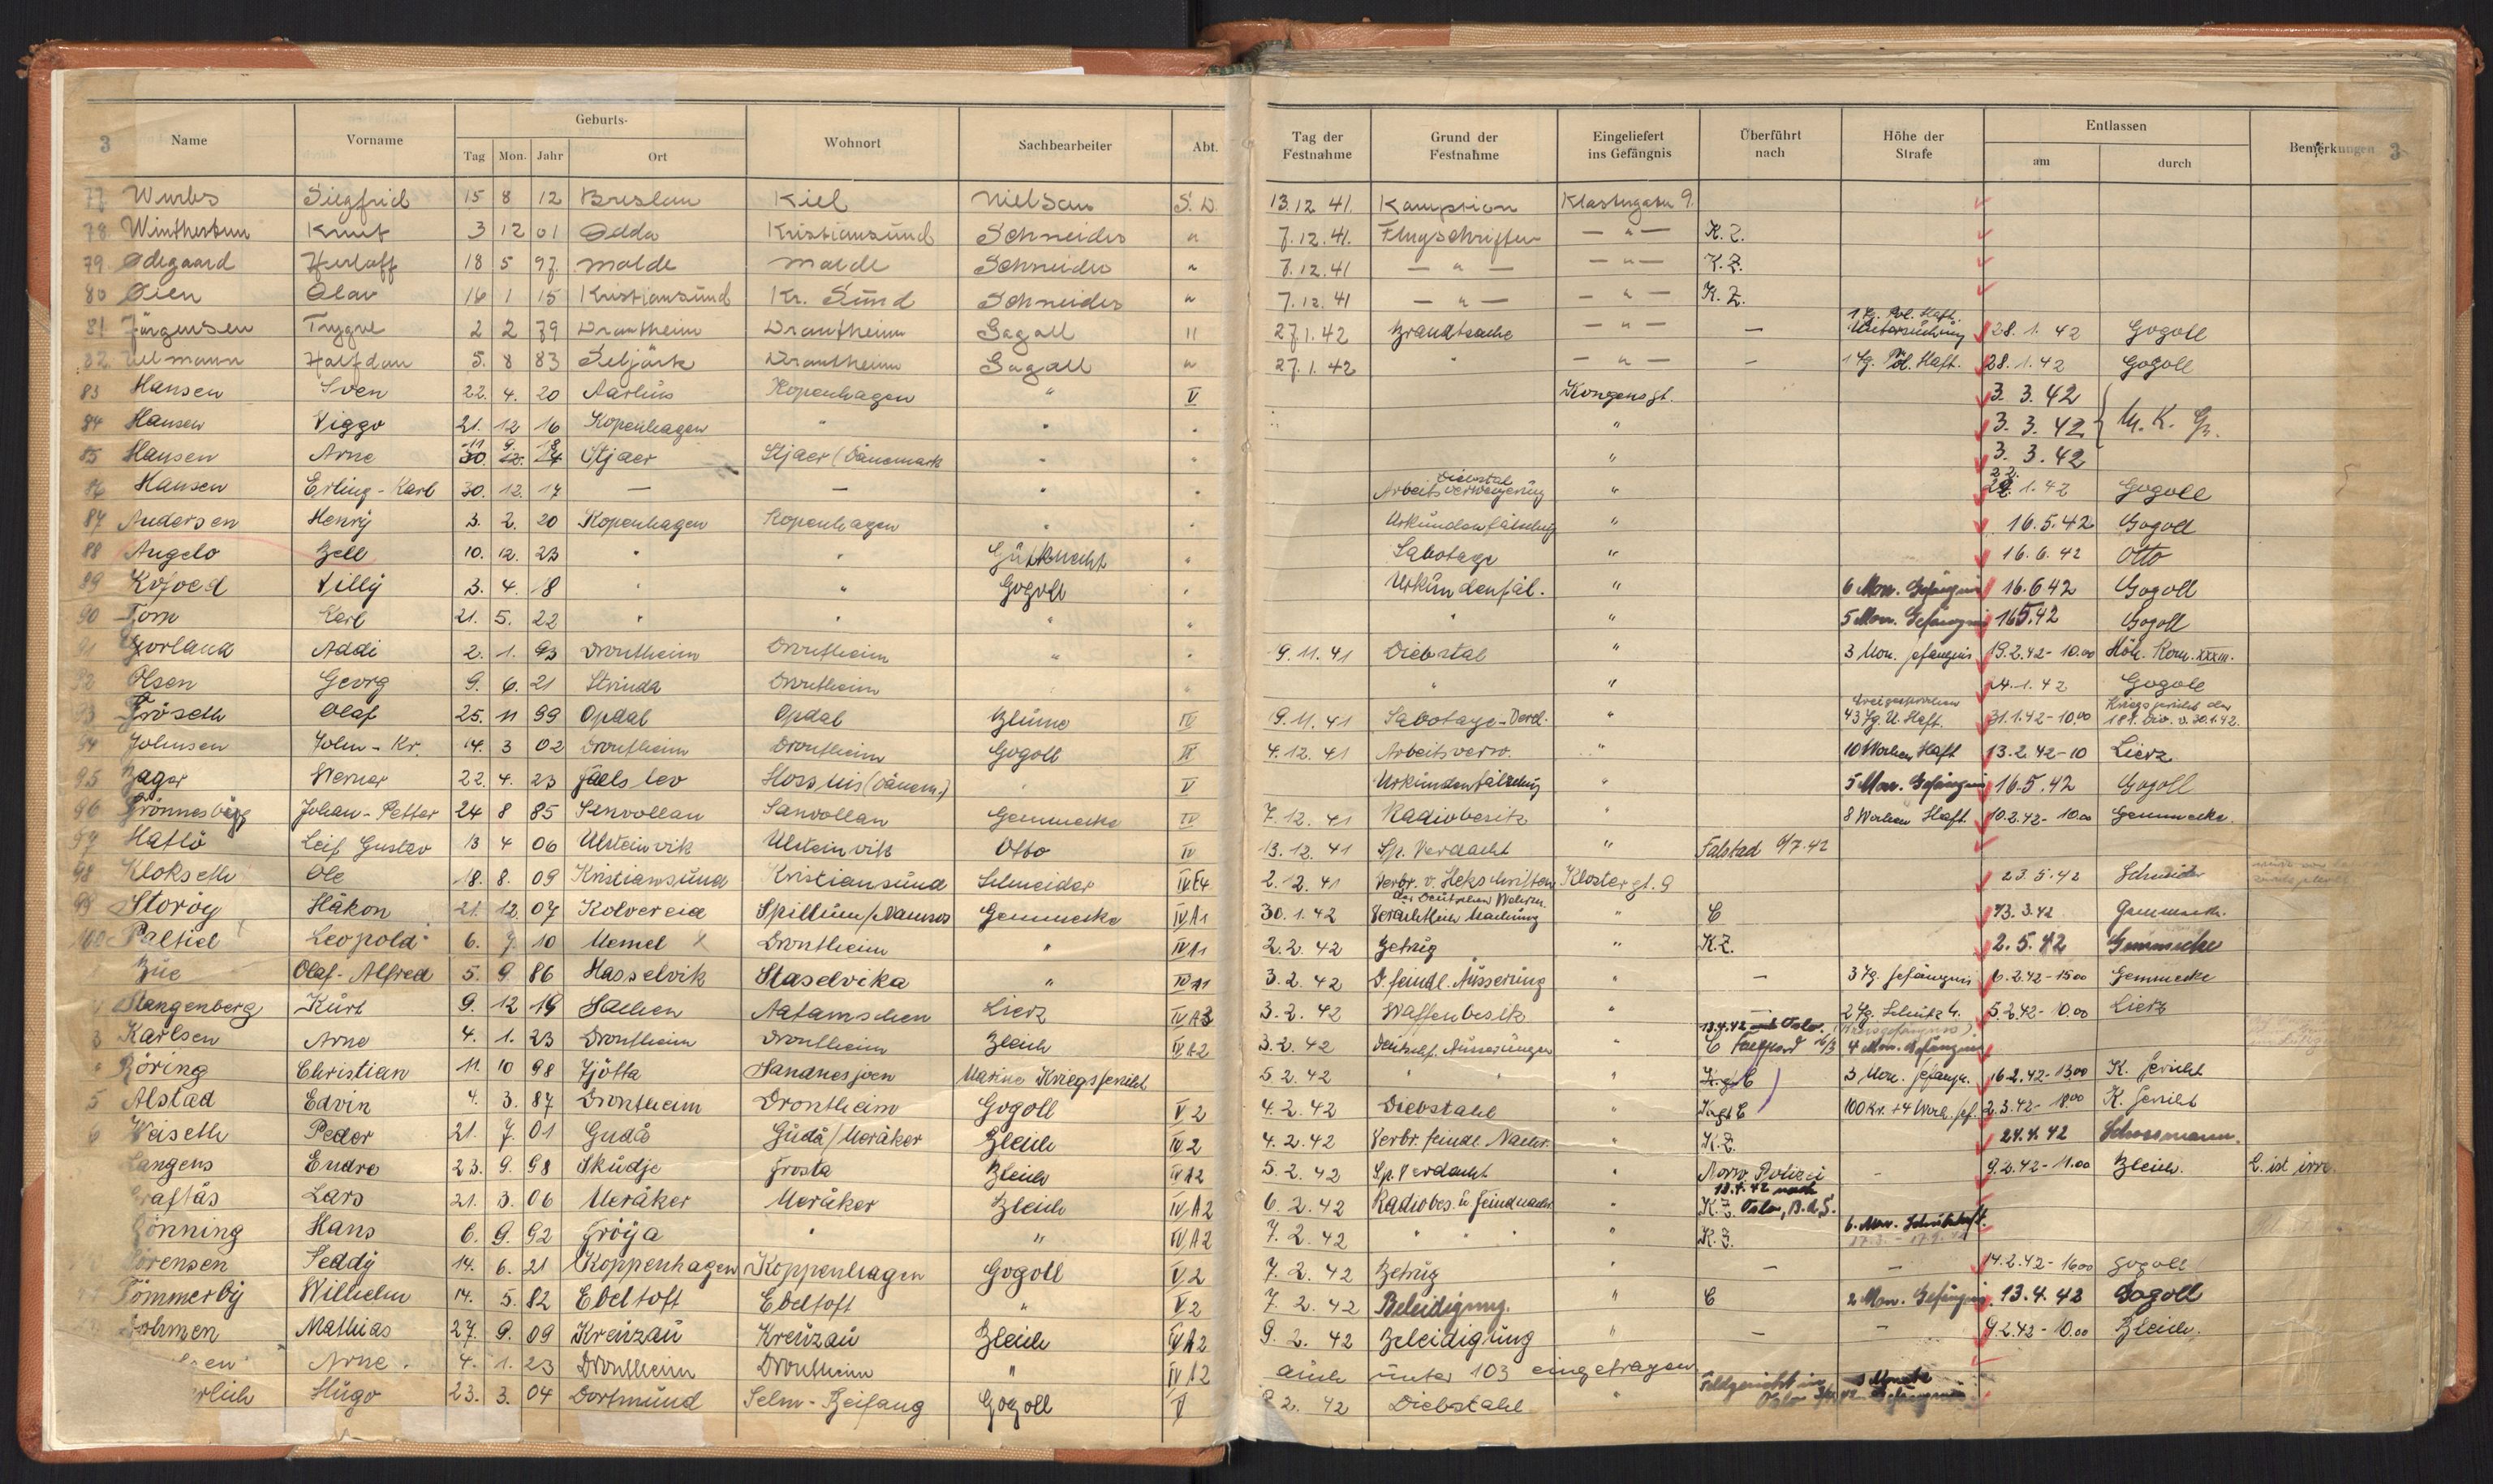 3 Name Vorname Geburts- Wohnort Sachbearbeiter Abt. Tag der Festnahme Grund der Festnahme Eingeliefert ins Gefängnis Überführt nach Höhe der Strafe Entlassen Bemerkungen 3
Tag Mon. Jahr Ort am durch
77 Wurbs Siegfried 15 8 12 Breslau Kiel Nielsen S.D. 13.12.41.
78. Knut 3 12 01 Odda Kristiansund Schneider " 7.12.41. Flugschriften — " — K.Z.
79. Ødegaard Herloff 18 5 97. Molde Molde Schneider " 7.12.41 — " — — " — K.Z.
80 Øien Olav 16 1 15 Kristiansund Kr. Sund Schneider " 7.12.41 — " — — " — K.Z.
81 Jürgensen Trygve 2 2 79 Drontheim Drontheim Gogoll " 27.1.42 Brandtsache — " — — 1 Tg. Pol. Haft. Untersuchung 28.1.42 Gogoll
82. Ullmann Halfdan 5. 8 83 Seljörk Drontheim Gogoll " 27.1.42 " — " — — 1 Tg. Pol. Haft. 28.1.42 Gogoll
83 Hansen Sven 22. 4. 20 Aarhus Kopenhagen " V Kongensgt. 3. 3. 42
84 Hansen Viggo 21. 12 16 Kopenhagen " " " " 3. 3. 42 M. K. Gr.
85 Hansen Arne 30. 12. 14 11 9. 18 Stjaer Stjaer (Dänemark " " " 3. 3. 42
86 Hansen Erling-Karl 30. 12. 17 — — " " Diebstal Arbeitsverweigerung " 22. 1. 42 Gogoll
87 Andersen Henry 3. 2. 20 Kopenhagen Kopenhagen " " Urkundenfälschung " 16.5.42 Gogoll
88 Angelo Bell 10. 12. 23 " " Gutknecht " Sabotage " 16.6.42 Otto
89 Kofoed Villy 3. 4. 18 " " Gogoll " Urkundenfäl. " 6 Mon. Gefängnis 16.6 42 Gogoll
90 Torn Karl 21. 5. 22 " " " " " " 5 Mon. Gefängnis 16 5.42 Gogoll
91 Gorland Addi 2. 1. 93 Drontheim Drontheim " " 9.11.41 Diebstal " 3 Mon. gefängnis 19.2.42-10.00 Höh. Kom. XXXIII.
92 Olsen Georg 9. 6. 21 Strinda Drontheim " " " " 24.1.42 Gogoll
93 Fröseth Olaf 25. 11 99 Opdal Opdal Blume IV 9.11.41 Sabotage-Verd. " freigesprochen 43 Tg. U. Haft. 31.1.42-10.00 Kriegsgericht der 181. Div. v. 30.1.42.
94 Johnsen John-Kr. 14. 3 02 Drontheim Drontheim Gogoll IV 4.12.41 Arbeitsverw. " 10 Wochen Haft 13.2.42-10 Lierz
95 Bager Werner 22. 4. 23 " V Urkundenfälschung " 5 Mon. Gefängnis 16.5.42 Gogoll
96 Johan-Petter 24 8 85 Senvollan Sanvollan Gemmecke IV 7.12.41 Radiobesitz " 8 Wochen Haft. 10.2.42-10.00 Gemmecke.
97 Hatlö Leif Gustav 13 4 06 Ulsteinvik Ulsteinvik Otto IV 13.12.41 Sp. Verdacht " Falstad 6/7.42
98 Klokseth Ole 18. 8. 09 Kristiansund Kristiansund Schneider IV E4 2.12.41 Verbr. v. Hetzschriften Klostergt. 9 23.5.42 Schneider
99 Storöy Håkon 21. 12. 07 Kolvereid Spillum/Namsos Gemmecke IV A1 30.1.42 der Deutschen Wehrm. Verächtlich Machung " C 13.3.42 Gemmecke.
100 Paltiel Leopold 6. 7. 10 Memel Drontheim " IV A1 2.2.42 Betrug " K.Z. 2.5.42 Gemmecke
Büe Olaf-Alfred 5. 9. 86 Hasselvik Staselvika " IV A1 3.2.42 D. feindl. Äusserung " — 3 Tg. gefängnis 6.2.42-15.00 Gemmecke
Stangenberg Kurt 9. 12 19 Sachen Lierz IV A3 3.2.42 Waffenbesitz " — 2 Tg. Schutz h. 5.2.42-10.00 Lierz
3 Karlsen Arne 4. 1. 23 Drontheim Drontheim Bleich IV A2 3.2.42 Deutschf. Äusserungen " 18.4.42 nach Oslo. C 4 Mon. Gefängnis
Röring Christian 11. 10 98 Tjötta Sandnesjoen Marine Kriegsgericht 5.2.42 " " C 3 Mon. gefängn. 16.2.42-13.00 K. gericht
5 Alstad Edvin 4. 3. 87 Drontheim Drontheim Gogoll V 2 4.2.42 Diebstahl " Kgt C 100 Kr. + 4 Woch. gef. 2.3.42-18.00 K. Gericht
6 Weiseth Peder 21. 7. 01 Gudå Gudå/Meråker Bleich IV 2 4.2.42 Verbr. feindl. Nachr. " K.Z. 24.4.42
Langens Endre 23. 9. 98 Skudje Frosta Bleich IV A2 5.2.42 Sp. Verdacht " Norw. Polizei — 9.2.42-11.00 Bleich. L. ist irre.
Lars 21. 3. 06 Meråker Meråker Bleich IV A2 6.2.42 Radiobes. u. feindnachr. " 18.4.42 nach K.Z. Oslo, B.d.S.
Rönning Hans 6. 9. 92 Fröya " " IV A2 7.2.42 " " " K.Z. 6. Mon. Schutzhaft.
Sörensen Teddy 14. 6. 21 Koppenhagen Koppenhagen Gogoll V 2 7.2.42 Betrug " — — 14.2.42-16.00 Gogoll
Tömmerby Wilhelm 14. 5. 82 Ebeltoft Ebeltoft " V 2 7.2.42 Beleidigung. " C 2 Mon. Gefängnis. 13.4.42 Gogoll
Mathias 27. 9. 09 Kreuzau Kreuzau Bleich IV A2 9.2.42 Beleidigung " — — 9.2.42-10.00 Bleich.
Arne. 4. 1. 23 Drontheim Drontheim " IV A2 auch unter 103 eingetragen
Hugo 23. 3. 04 Dortmund Selm-Beifang Gogoll V 2. 42 Diebstahl " Feldgericht in Oslo